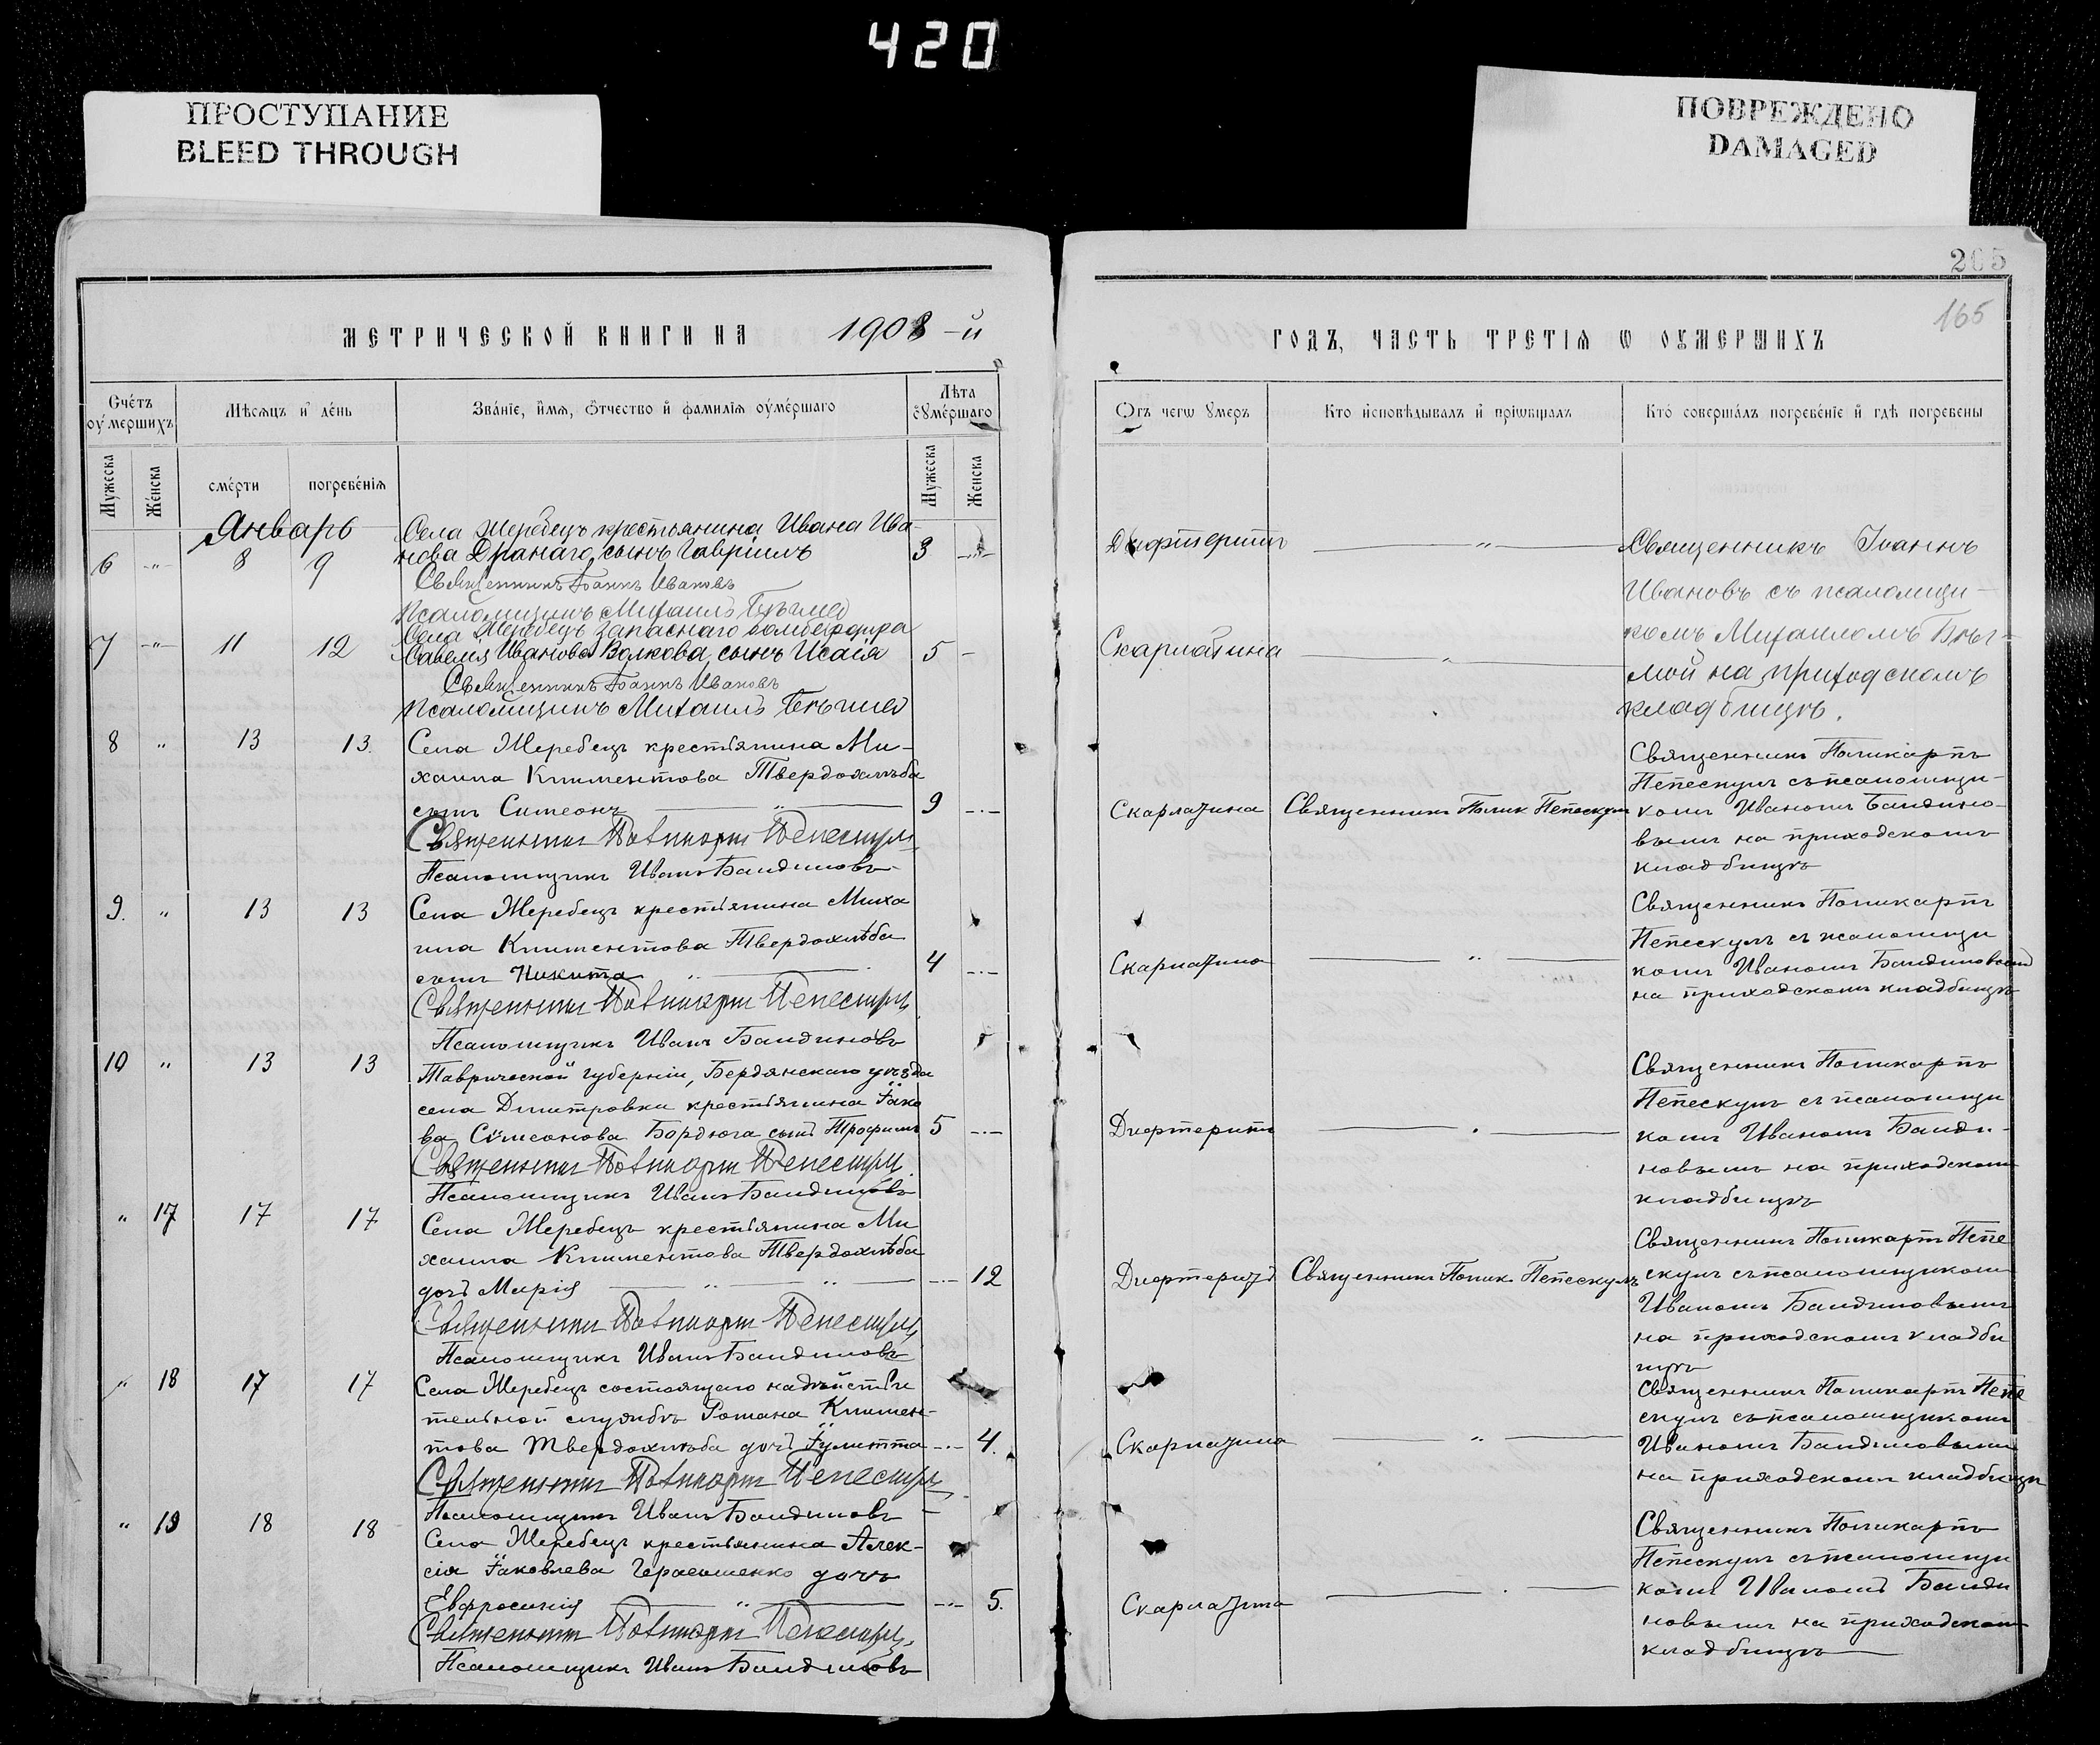 420
ПРОСТУПАНИЕ
BLEED THROUGH
ПОВРЕЖДЕНО
DAMAGED
205
165
МЕТРИЧЕСКОЙ КНИГИ НА 1908 -й
ГОДЪ, ЧАСТЬ ТРЕТІѦ Ѡ ОУМЕРШИХЪ
Счéтъ оумершихъ
Мѣсяцъ и дéнь
Звáніе, имя, отчество и фамилія оумéршаго
Лѣта оумéршаго
Мужеска
Жéнска
смéрти
погребéнія
Мужеска
Женска
Отъ чегѡ умеръ
Кто исповѣдывалъ и пріѡбщалъ
Ктó совершáлъ погребéніе и гдѣ погребены
Январь
Села Жеребецъ крестьянина Ивана Ива-
6 -"- 8 9 нова Дранаго, сынъ Гавріилъ 3 -"-
Священникъ Іоаннъ Ивановъ
Псаломщикъ Михаилъ
Дифтеритъ "
Священникъ Іоаннъ
Ивановъ съ псаломщи-
комъ Михаиломъ
мой на приходскомъ
кладбищѣ.
Села Жеребецъ запаснаго бомбардира
7 -"- 11 12 Савелія Иванова Волкова, сынъ Исаія 5 -
Священникъ Іоаннъ Ивановъ
Псаломщикъ Михаилъ
Скарлатина "
8 " 13 13. Села Жеребецъ крестьянина Ми-
хаила Климентова Твердохлѣба
сынъ Симеонъ " 9 -.-
Священникъ Поликарпъ Пепескулъ
Псаломщикъ Иванъ Бандиновъ
Скарлатина Священникъ Полик Пепескулъ
Священникъ Поликарпъ
Пепескулъ съ псаломщи-
комъ Иваномъ Бандино-
вымъ на приходскомъ
кладбищѣ
9. " 13 13 Села Жеребецъ крестьянина Миха
ила Климентова Твердохлѣба
сынъ Никита " 4 -.-
Священникъ Поликарпъ Пепескулъ
Псаломщикъ Иванъ Бандиновъ
Скарлатина "
Священникъ Поликарпъ
Пепескулъ съ псаломщи
комъ Иваномъ Бандиновымъ
на приходскомъ кладбищѣ
10 " 13 13 Таврической губерніи, Бердянскаго уѣзда
села Дмитровки крестьянина Іако
ва Симеонова Бордюга сынъ Трофимъ 5 -.-
Священникъ Поликарпъ Пепескулъ
Псаломщикъ Иванъ Бандиновъ
Дифтеритъ
Священникъ Поликарпъ
Пепескулъ съ псаломщи
комъ Иваномъ Банди-
новымъ на приходскомъ
кладбищѣ
" 17 17 17 Села Жеребецъ крестьянина Ми
хаила Климентова Твердохлѣба
дочь Марія " " -.- 12
Священникъ Поликарпъ Пепескулъ
Псаломщикъ Иванъ Бандиновъ
Дифтеритъ Священникъ Полик. Пепескулъ
Священникъ Поликарпъ Пепе
скулъ съ псаломщикомъ
Иваномъ Бандиновымъ
на приходскомъ кладби
щѣ
" 18 17 17 Села Жеребецъ состоящаго на дѣйстви
тельной службѣ Романа Климен-
това Твердохлѣба дочь Іулитта -.- 4.
Священникъ Поликарпъ Пепескулъ
Псаломщикъ Иванъ Бандиновъ
Скарлатина "
Священникъ Поликарпъ Пепе
скулъ съ псаломщикомъ
Иваномъ Бандиновымъ
на приходскомъ кладбищѣ
" 19 18 18 Села Жеребецъ крестьянина Алек-
сія Іаковлева Герасименко дочь
Евфросинія " -.- 5.
Священникъ Поликарпъ Пепескулъ
Псаломщикъ Иванъ Бандиновъ
Скарлатина
Священникъ Поликарпъ
Пепескулъ съ псаломщи
комъ Иваномъ Банди
новымъ на приходскомъ
кладбищѣ